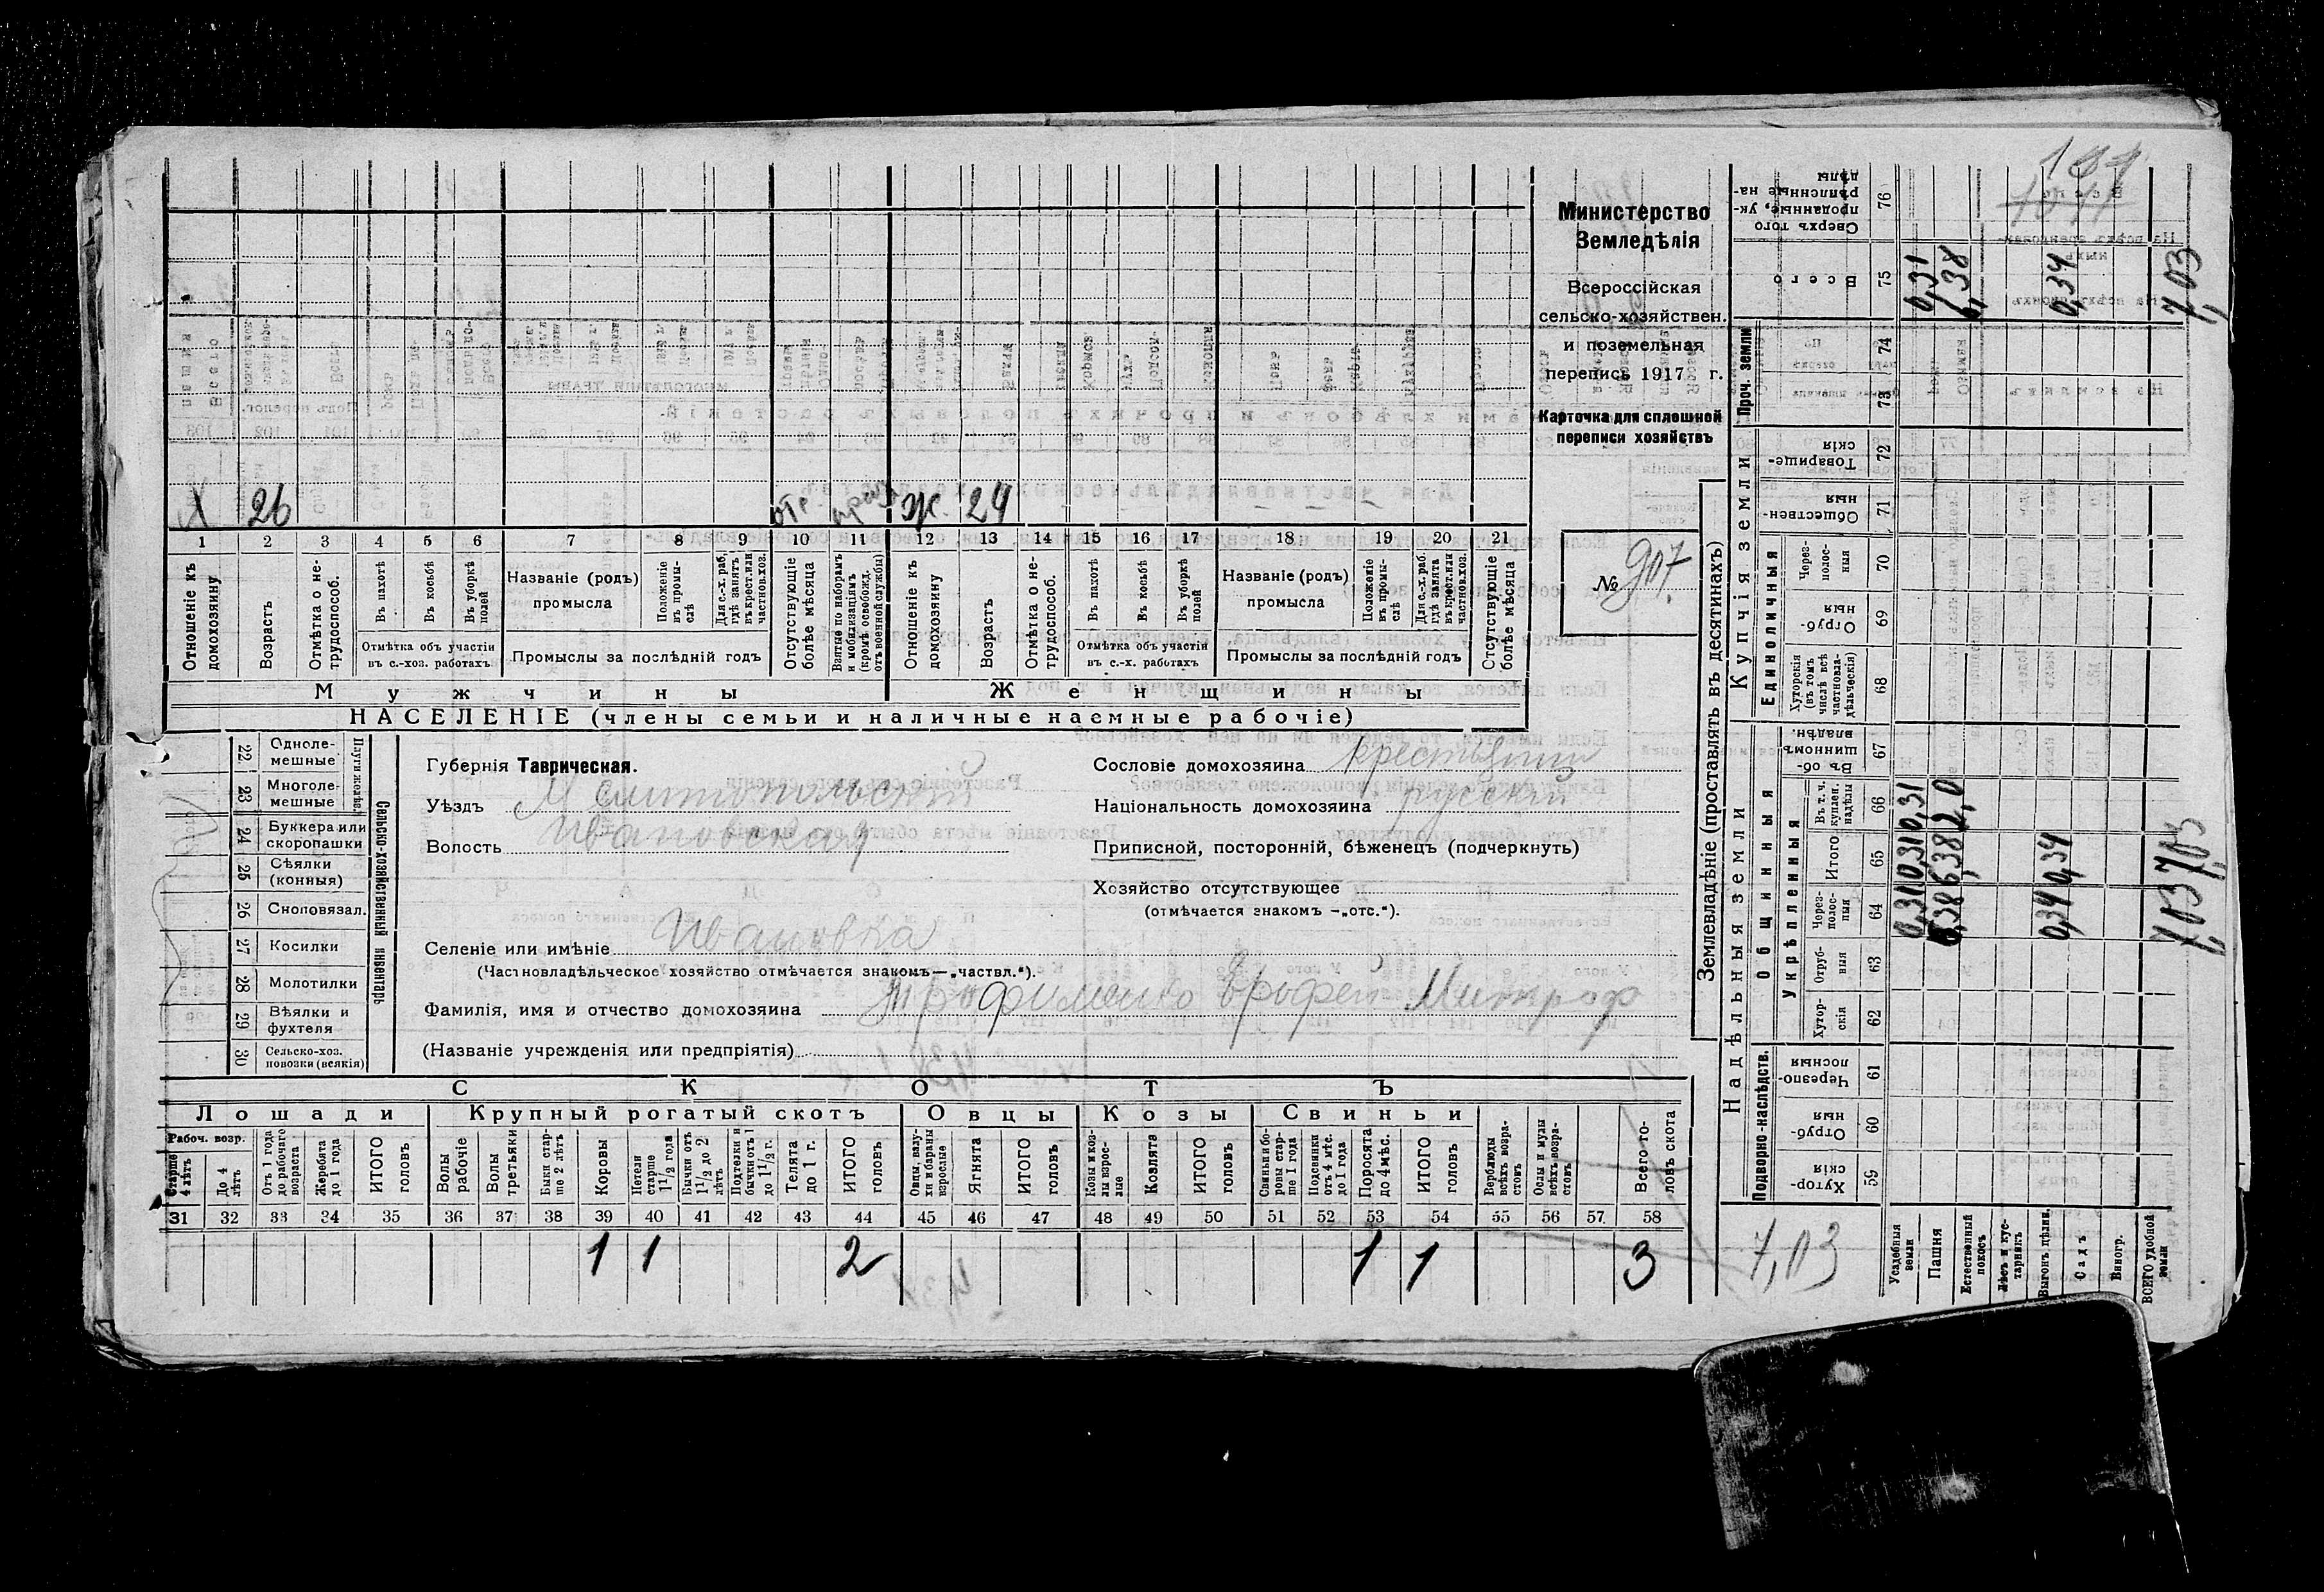 Министерство
Земледѣлія
Всероссійская
сельско-хозяйствен.
и поземельная
перепись 1917 г.
Карточка для сплошной
переписи хозяйствъ
№ 907.
Х 26 отс. Ж. 24
1 2 3 4 5 6 7 8 9 10 11 12 13 14 15 16 17 18 19 20 21
Отношеніе къ домохозяину
Возрастъ
Отмѣтка о не-трудоспособ.
Въ пахотѣ
Въ косьбѣ
Въ уборкѣ полей
Отмѣтка объ участіи въ с.-хоз. работахъ
Названіе (родъ) промысла
Положеніе въ промы-слѣ
Для с.-х. раб., гдѣ занятъ въ крест. или частнов. хоз.
Промыслы за послѣдній годъ
Отсутствующіе болѣе мѣсяца
Взятые по наборамъ и мобилизаціямъ (кромѣ освобожд. отъ военной службы)
Отношеніе къ домохозяину
Возрастъ
Отмѣтка о не-трудоспособ.
Въ пахотѣ
Въ косьбѣ
Въ уборкѣ полей
Отмѣтка объ участіи въ с.-х. работахъ
Названіе (родъ) промысла
Положеніе въ промы-слѣ
Для с.-х. раб. гдѣ занята въ крест. или частнов. хоз.
Промыслы за послѣдній годъ
Отсутствующіе болѣе мѣсяца
Мужчины Женщины
НАСЕЛЕНІЕ (члены семьи и наличные наемные рабочіе)
22 Одноле-мешные
23 Многоле-мешные
Плуги желѣз.
24 Буккера или скоропашки
25 Сѣялки (конныя)
26 Сноповязал.
27 Косилки
28 Молотилки
29 Вѣялки и фухтеля
30 Сельско-хоз. повозки (всякія)
Сельско-хозяйственный инвентарь
Губернія Таврическая.
Уѣздъ Мелитопольскій
Волость Ивановская
Сословіе домохозяина крестьянин
Національность домохозяина русскій
Приписной, посторонній, бѣженецъ (подчеркнуть)
Хозяйство отсутствующее
(отмѣчается знакомъ —„отс.“).
Селеніе или имѣніе Ивановка
(Частновладѣльческое хозяйство отмѣчается знакомъ—„частвл.“).
Фамилія, имя и отчество домохозяина Трофименко Ерофей Митроф
(Названіе учрежденія или предпріятія)
СКОТЪ
Лошади Крупный рогатый скотъ Овцы Козы Свиньи
Рабоч. возр.
Старше 4 лѣтъ
До 4 лѣтъ
Отъ 1 года до рабочаго возраста
Жеребята до 1 года
ИТОГО головъ
Волы рабочіе
Волы третьяки
Быки стар-ше 2 лѣтъ
Коровы
Нетели старше 1½ года
Бычки отъ 1½ до 2 лѣтъ
Подтелки и бычки отъ 1 до 1½ г.
Телята до 1 г.
ИТОГО головъ
Овцы, валу-хи и бараны взрослые
Ягнята
ИТОГО головъ
Козы и коз-лы взрос-лые
Козлята
ИТОГО головъ
Свиньи и бо-ровы стар-ше 1 года
Подсвинки отъ 4 мѣс. до 1 года
Поросята до 4 мѣс.
ИТОГО головъ
Верблюды всѣхъ возра-стовъ
Ослы и мулы всѣхъ возра-стовъ
Всего го-ловъ скота
31 32 33 34 35 36 37 38 39 40 41 42 43 44 45 46 47 48 49 50 51 52 53 54 55 56 57 58
1 1 2 1 1 3
Землевладѣніе (проставлять въ десятинахъ)
Надѣльныя земли
Купчія земли
Проч. земли
Подворно-наслѣдств.
Общинныя
Укрѣпленныя
Единоличныя
Хутор-скія 59
Отруб-ныя 60
Черезпо-лосныя 61
Хутор-скія 62
Отруб-ныя 63
Через-полос-ныя 64
Итого 65
Въ т. ч. куплен. надѣлы 66
Въ об-щинномъ владѣн. 67
Хуторскія (въ томъ числѣ всѣ частновла-дѣльческія) 68
Отруб-ныя 69
Через-полос-ныя 70
Обществен-ныя 71
Товарище-скія 72
73
74
Всего 75
Сверхъ того проданные, ук-рѣпленные на-дѣлы 76
Усадебныя земли 0,31 0,31 0,31 0,31
Пашня 6,38 6,38 2,0 6,38
Естественный покосъ
Лѣсъ и кус-тарникъ
Выгонъ цѣлин. 0,34 0,34 0,34
Садъ
Виногр.
ВСЕГО удобной земли 7,03 7,03 7,03
7,03